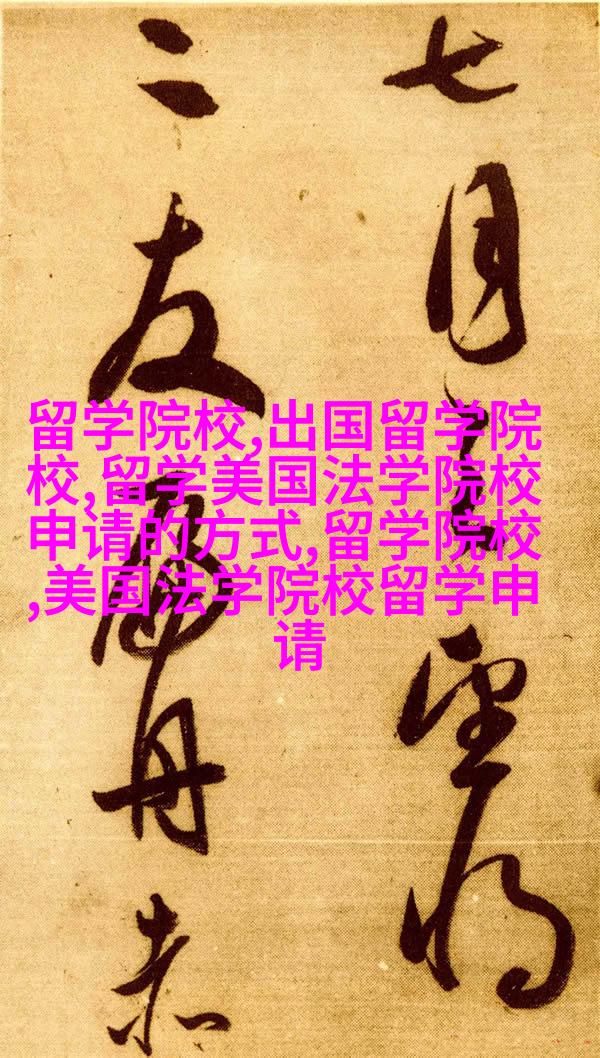 七月望将
二友舟赤
留学院校,出国留学院
校,留学美国法学院校
申请的方式,留学院校
,美国法学院校留学申
请